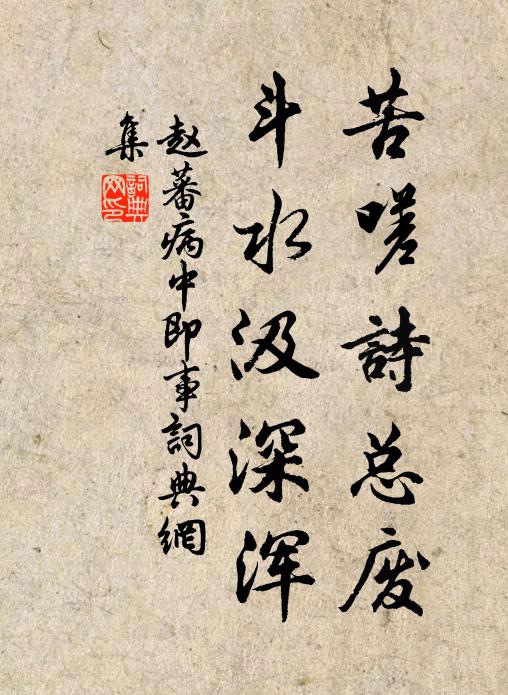 苦嗟詩总废
斗水汲深浑
赵蕃病中即事詞典網
集
詞典
网印